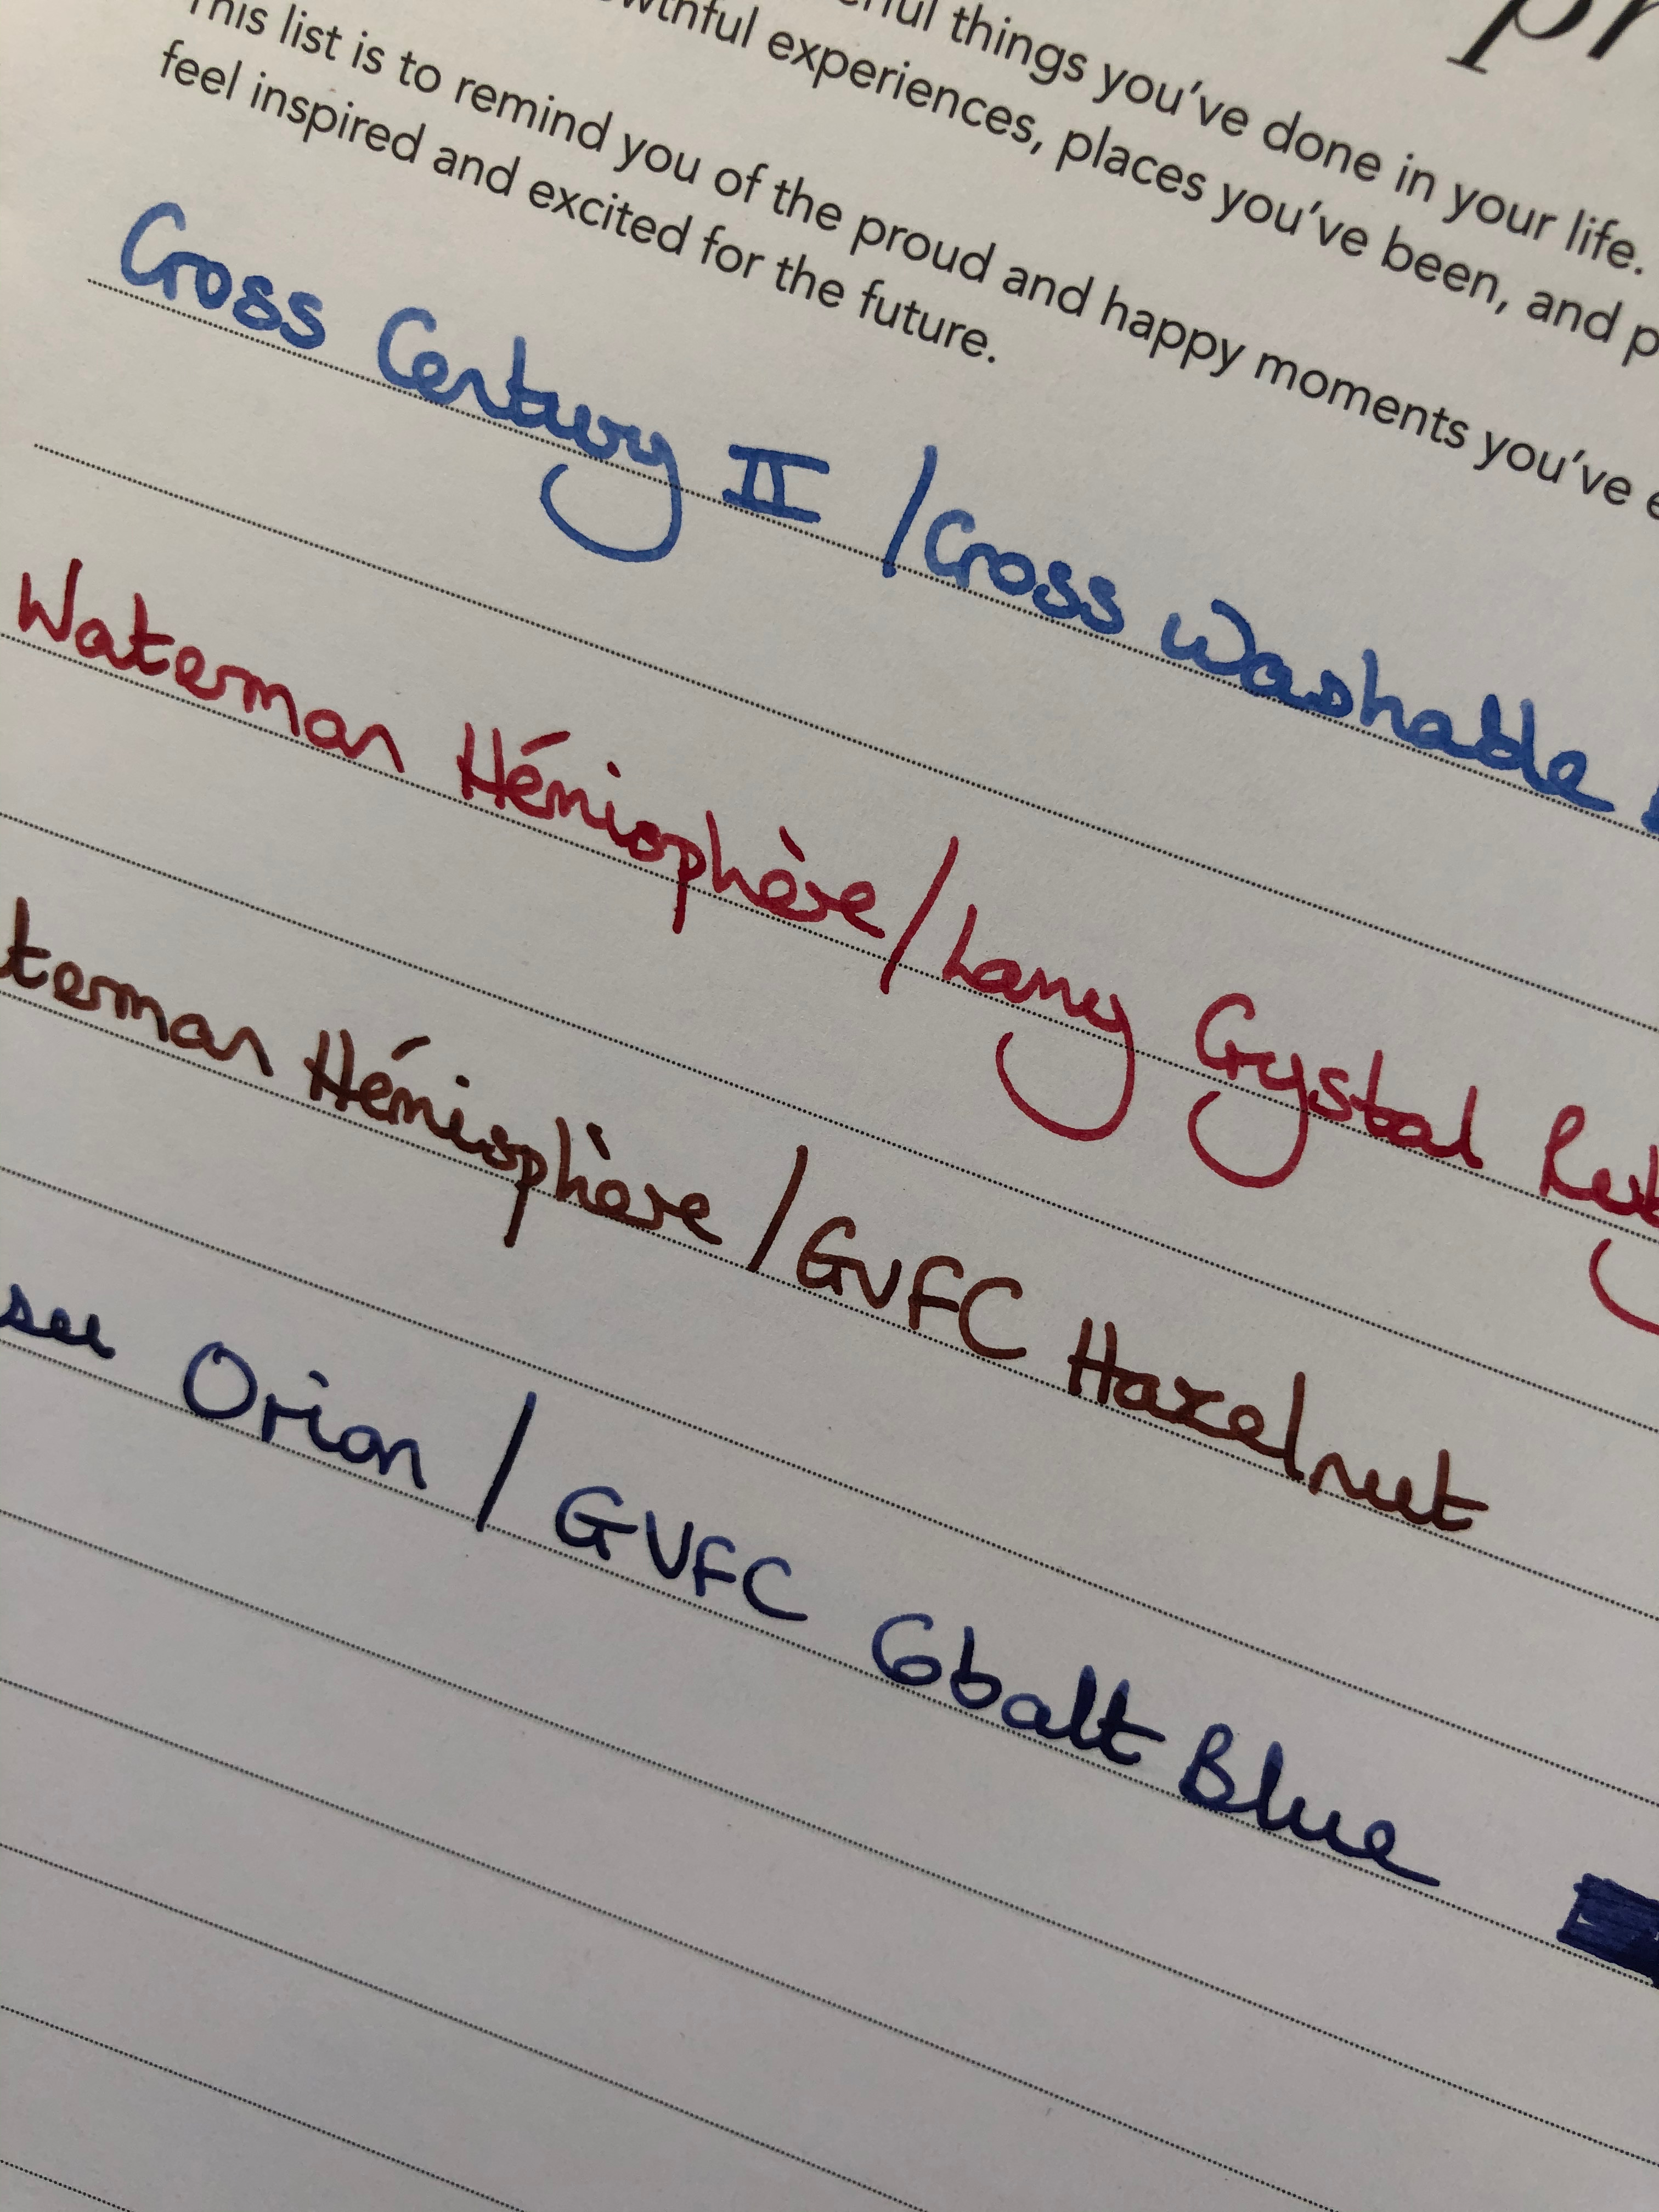 pr
things you've done in your life.
experiences, places you've been, and
This list is to remind you of the proud and happy moments you've
feel inspired and excited for the future.
Cross Century II / Cross Washable
Waterman Hémisphère / Lamy Crystal Ruby
terman Hémisphère / GVFC Hazelnut
see Orion / GVFC Cobalt Blue